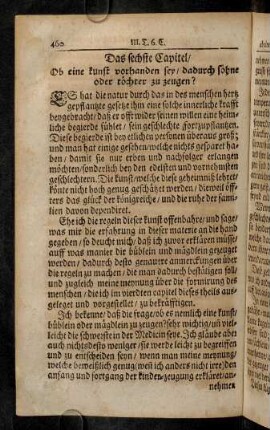 460 III. T. 6. C.
Das sechste Capitel/
Ob eine kunst vorhanden sey/ dadurch söhne
oder töchter zu zeugen?
ES hat die natur durch das in des menschen hertz
gepflantzte gesetz ihm eine solche innerliche krafft
beygebracht/ daß er offt wider seinen willen eine heim-
liche begierde fühlet/ sein geschlechte fortzupflantzen.
Diese begierde ist bey etlichen personen überaus groß;
und man hat einige gesehen/ welche nichts gesparet ha-
ben/ damit sie nur erben und nachfolger erlangen
möchten/ sonderlich bey den edelsten und vornehmsten
geschlechtern. Die kunst/ welche diese geheimniß lehret/
könte nicht hoch genug geschätzet werden/ dieweil öff-
ters das glück der königreiche/ und die ruhe der fami-
lien davon dependiret.
Ehe ich die regeln dieser kunst offenbahre/ und sage/
was mir die erfahrung in dieser materie an die hand
gegeben/ so deucht mich/ daß ich zuvor erklären müsse/
auff was manier die büblein und mägdlein gezeuget
werden/ dadurch desto genauere anmerckungen über
die regeln zu machen/ die man dadurch bestätigen soll/
und zugleich meine meynung über die formirung des
menschen/ die ich im vierdten capitel dieses theils aus-
geleget und vorgestellet/ zu bekräfftigen.
Ich bekenne/ daß die frage/ ob es nemlich eine kunst/
büblein oder mägdlein zu zeugen? sehr wichtig/ uñ viel-
leicht die schwerste in der Medicin sey. Ich glaube aber
auch nichtsdesto weniger/ sie werde leicht zu begreiffen
und zu entscheiden seyn/ wenn man meine meynung/
welche beweißlich genug/ weil ich anders nicht irre/ den
anfang und fortgang der kinder-zeugung erkläret/ an-
nehmen